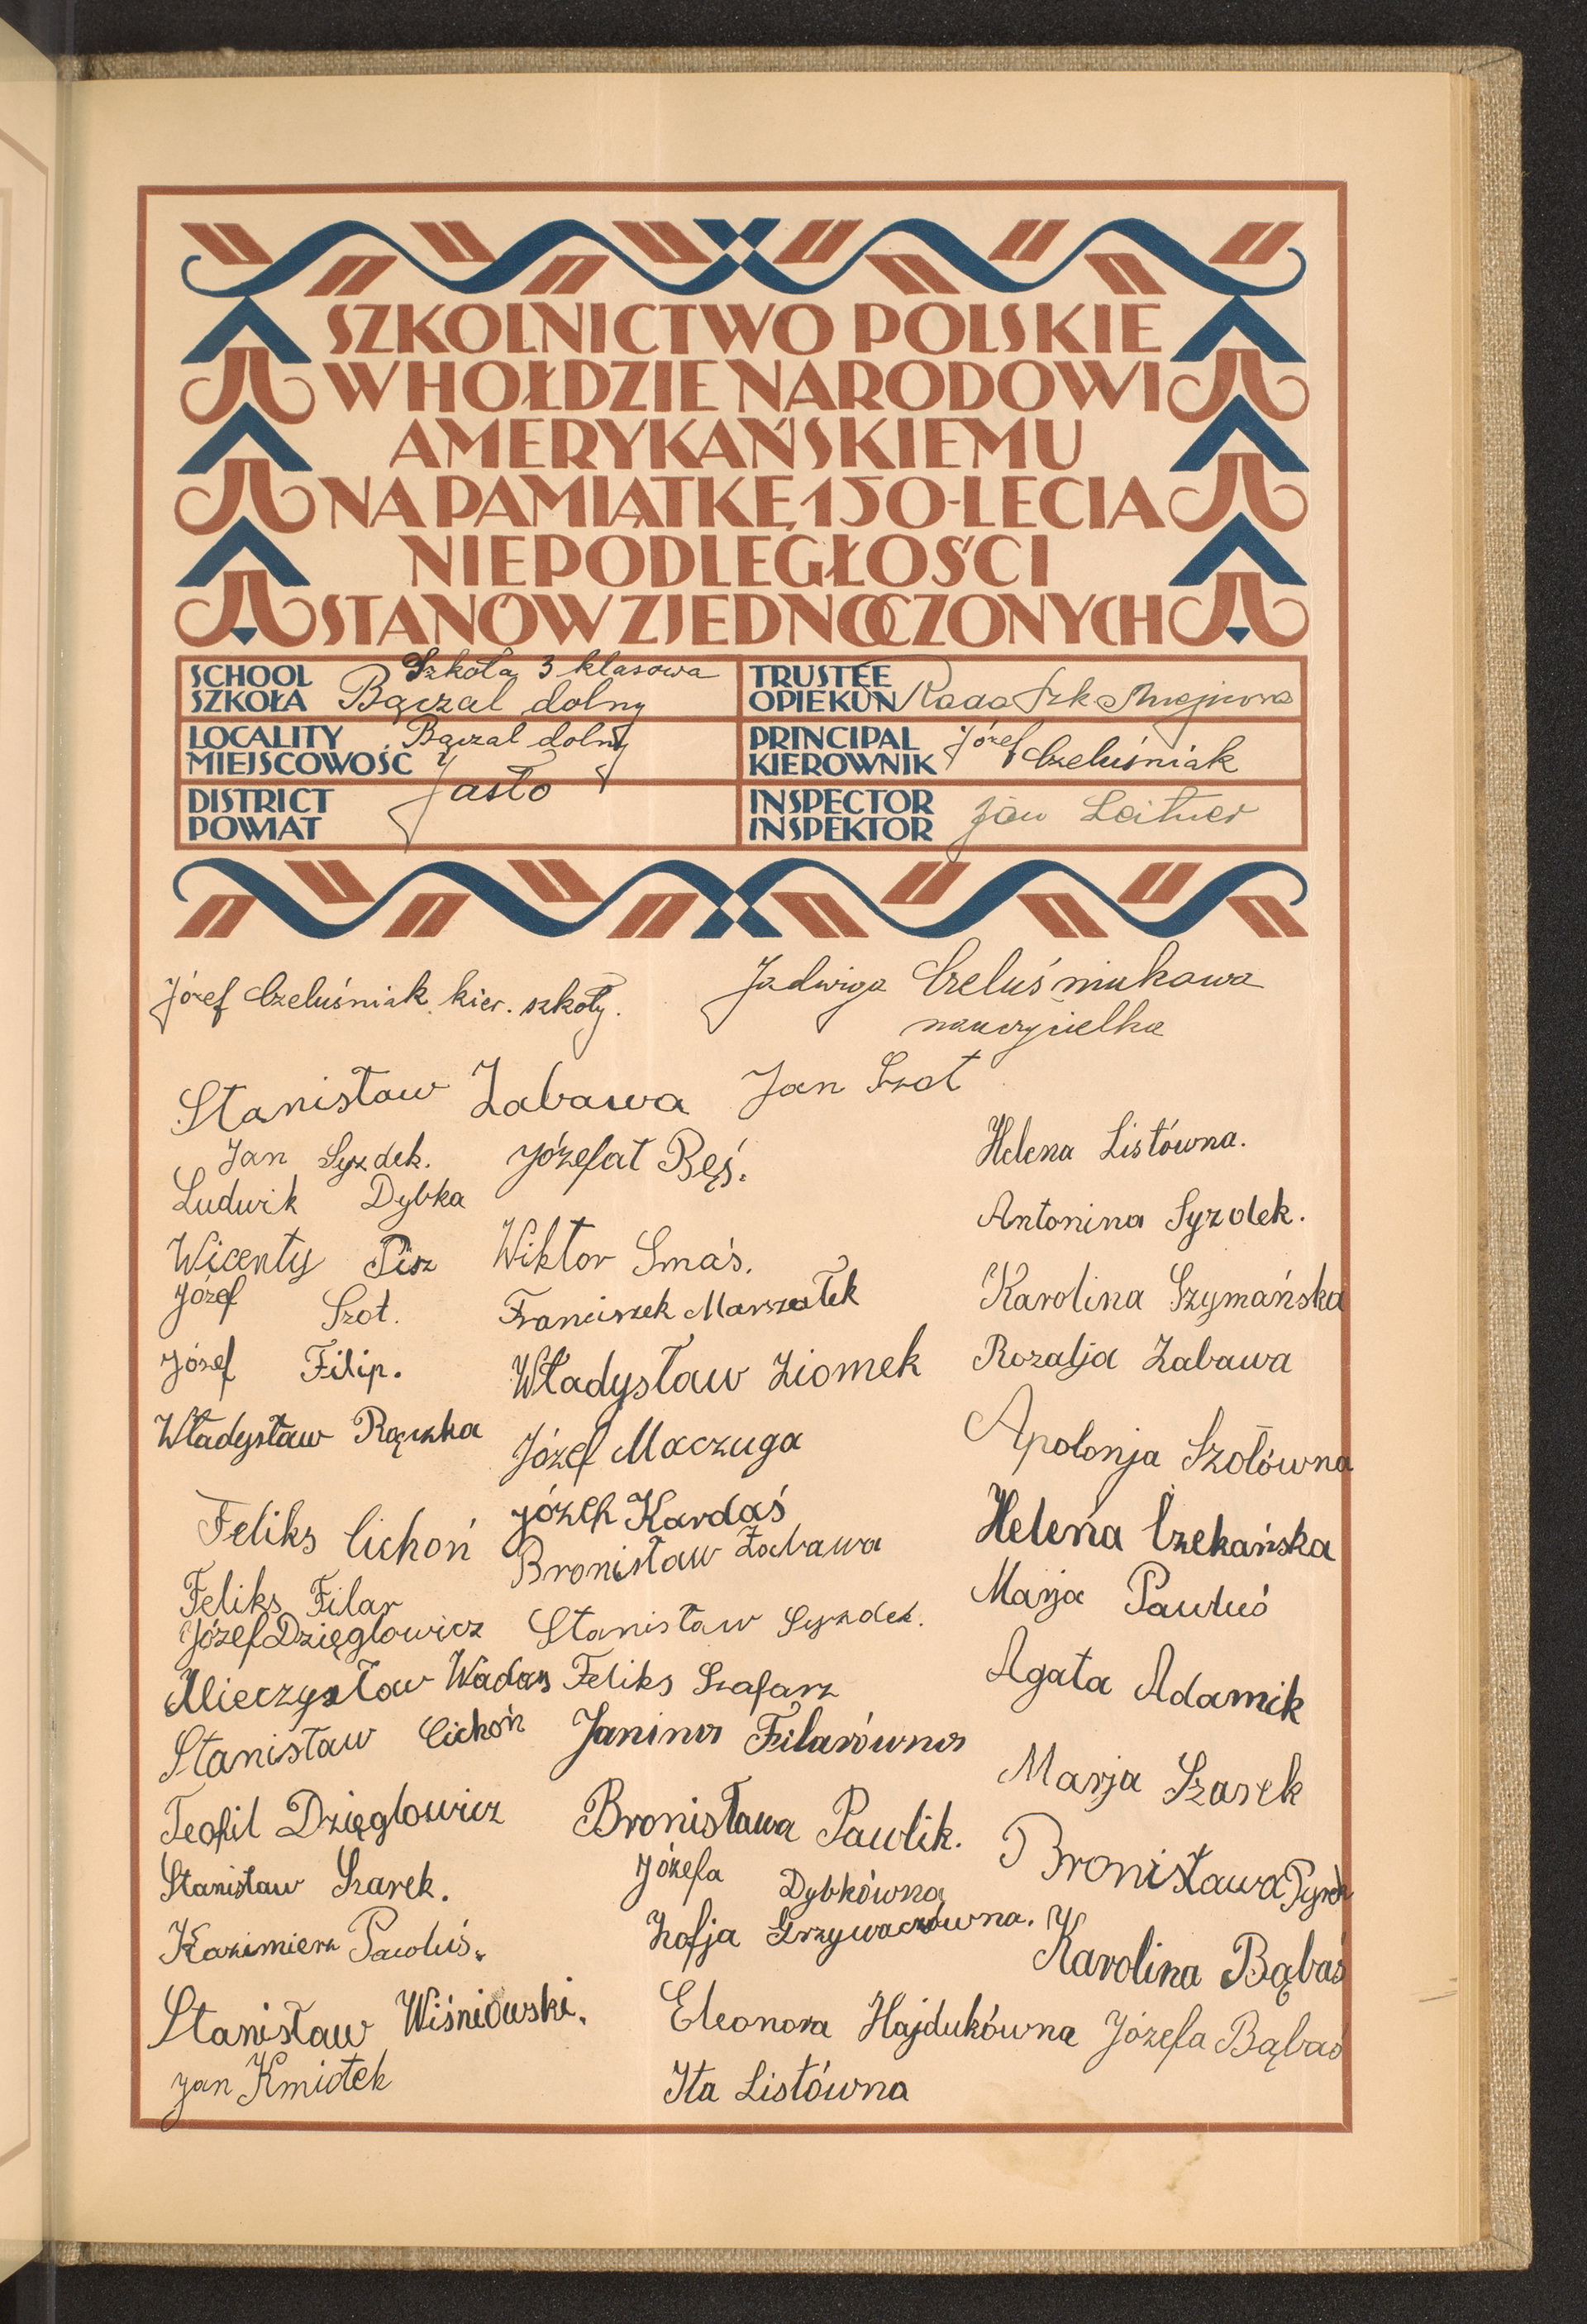 SZKOLNICTWO POLSKIE
W HOŁDZIE NARODOWI
AMERYKAŃSKIEMU
NA PAMIĄTKĘ 150-LECIA
NIEPODLEGŁOŚCI
STANÓW ZJEDNOCZONYCH
SCHOOL
SZKOŁA
Szkoła 3 klasowa
Bączal dolny
TRUSTEE
OPIEKUN
Rada Szk. Miejscowa
LOCALITY
MIEJSCOWOŚĆ
Bączal dolny
PRINCIPAL
KIEROWNIK
Józef Czeluśniak
DISTRICT
POWIAT
Jasło
INSPECTOR
INSPEKTOR
Jan Leitner
Józef Czeluśniak kier. szkoły.
Jadwiga Czeluśniakowa
nauczycielka
Stanisław Zabawa
Jan Szot
Jan Syzdek.
Ludwik Dybka
Wicenty Pisz
Józef Szot.
Józef Filip.
Władysław Rączka
Feliks Cichoń
Feliks Filar
Józef Dzięglowicz
Mieczysław Wadas
Stanisław Cichoń
Teofil Dzięglowicz
Stanisław Szarek.
Kazimierz Pawluś.
Stanisław Wiśniowski.
Jan Kmiotek
Józefat Bęś.
Wiktor Smaś.
Franciszek Marszałek
Władysław Ziomek
Józef Maczuga
Józef Kardaś
Bronisław Zabawa
Stanisław Syzdek.
Feliks Szafarz
Janina Filarówna
Bronisława Pawlik.
Józefa Dybkówna
Zofja Grzywaczówna.
Eleonora Hajdukówna
Ita Listówna
Helena Listówna.
Antonina Syzdek.
Karolina Szymańska
Rozalja Zabawa
Apolonja Szotówna
Helena Czekańska
Marja Pawluś
Agata Adamik
Marja Szarek
Bronisława
Karolina Bąbaś
Józefa Bąbaś